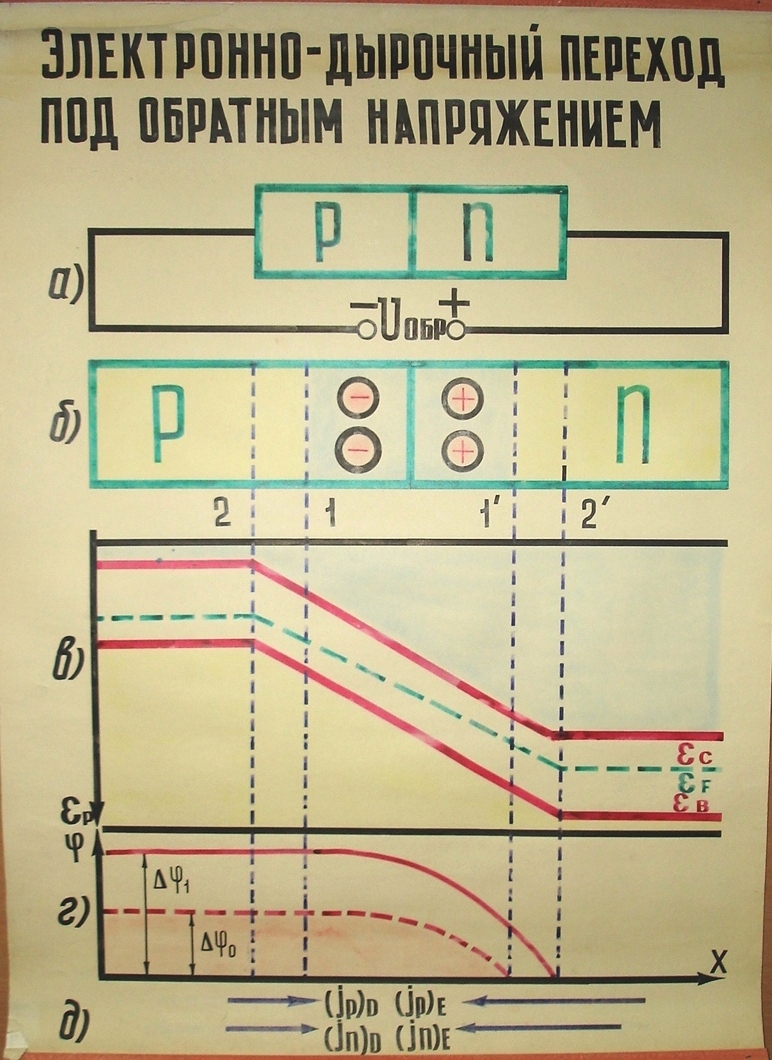 ЭЛЕКТРОННО-ДЫРОЧНЫЙ ПЕРЕХОД
ПОД ОБРАТНЫМ НАПРЯЖЕНИЕМ
p n
а)
− Uобр +
б)
p − + n
− +
2 1 1′ 2′
в)
εc
εF
εв
εp
φ
Δφ1
г)
Δφ0
X
(jp)D (jp)E
д)
(jn)D (jn)E